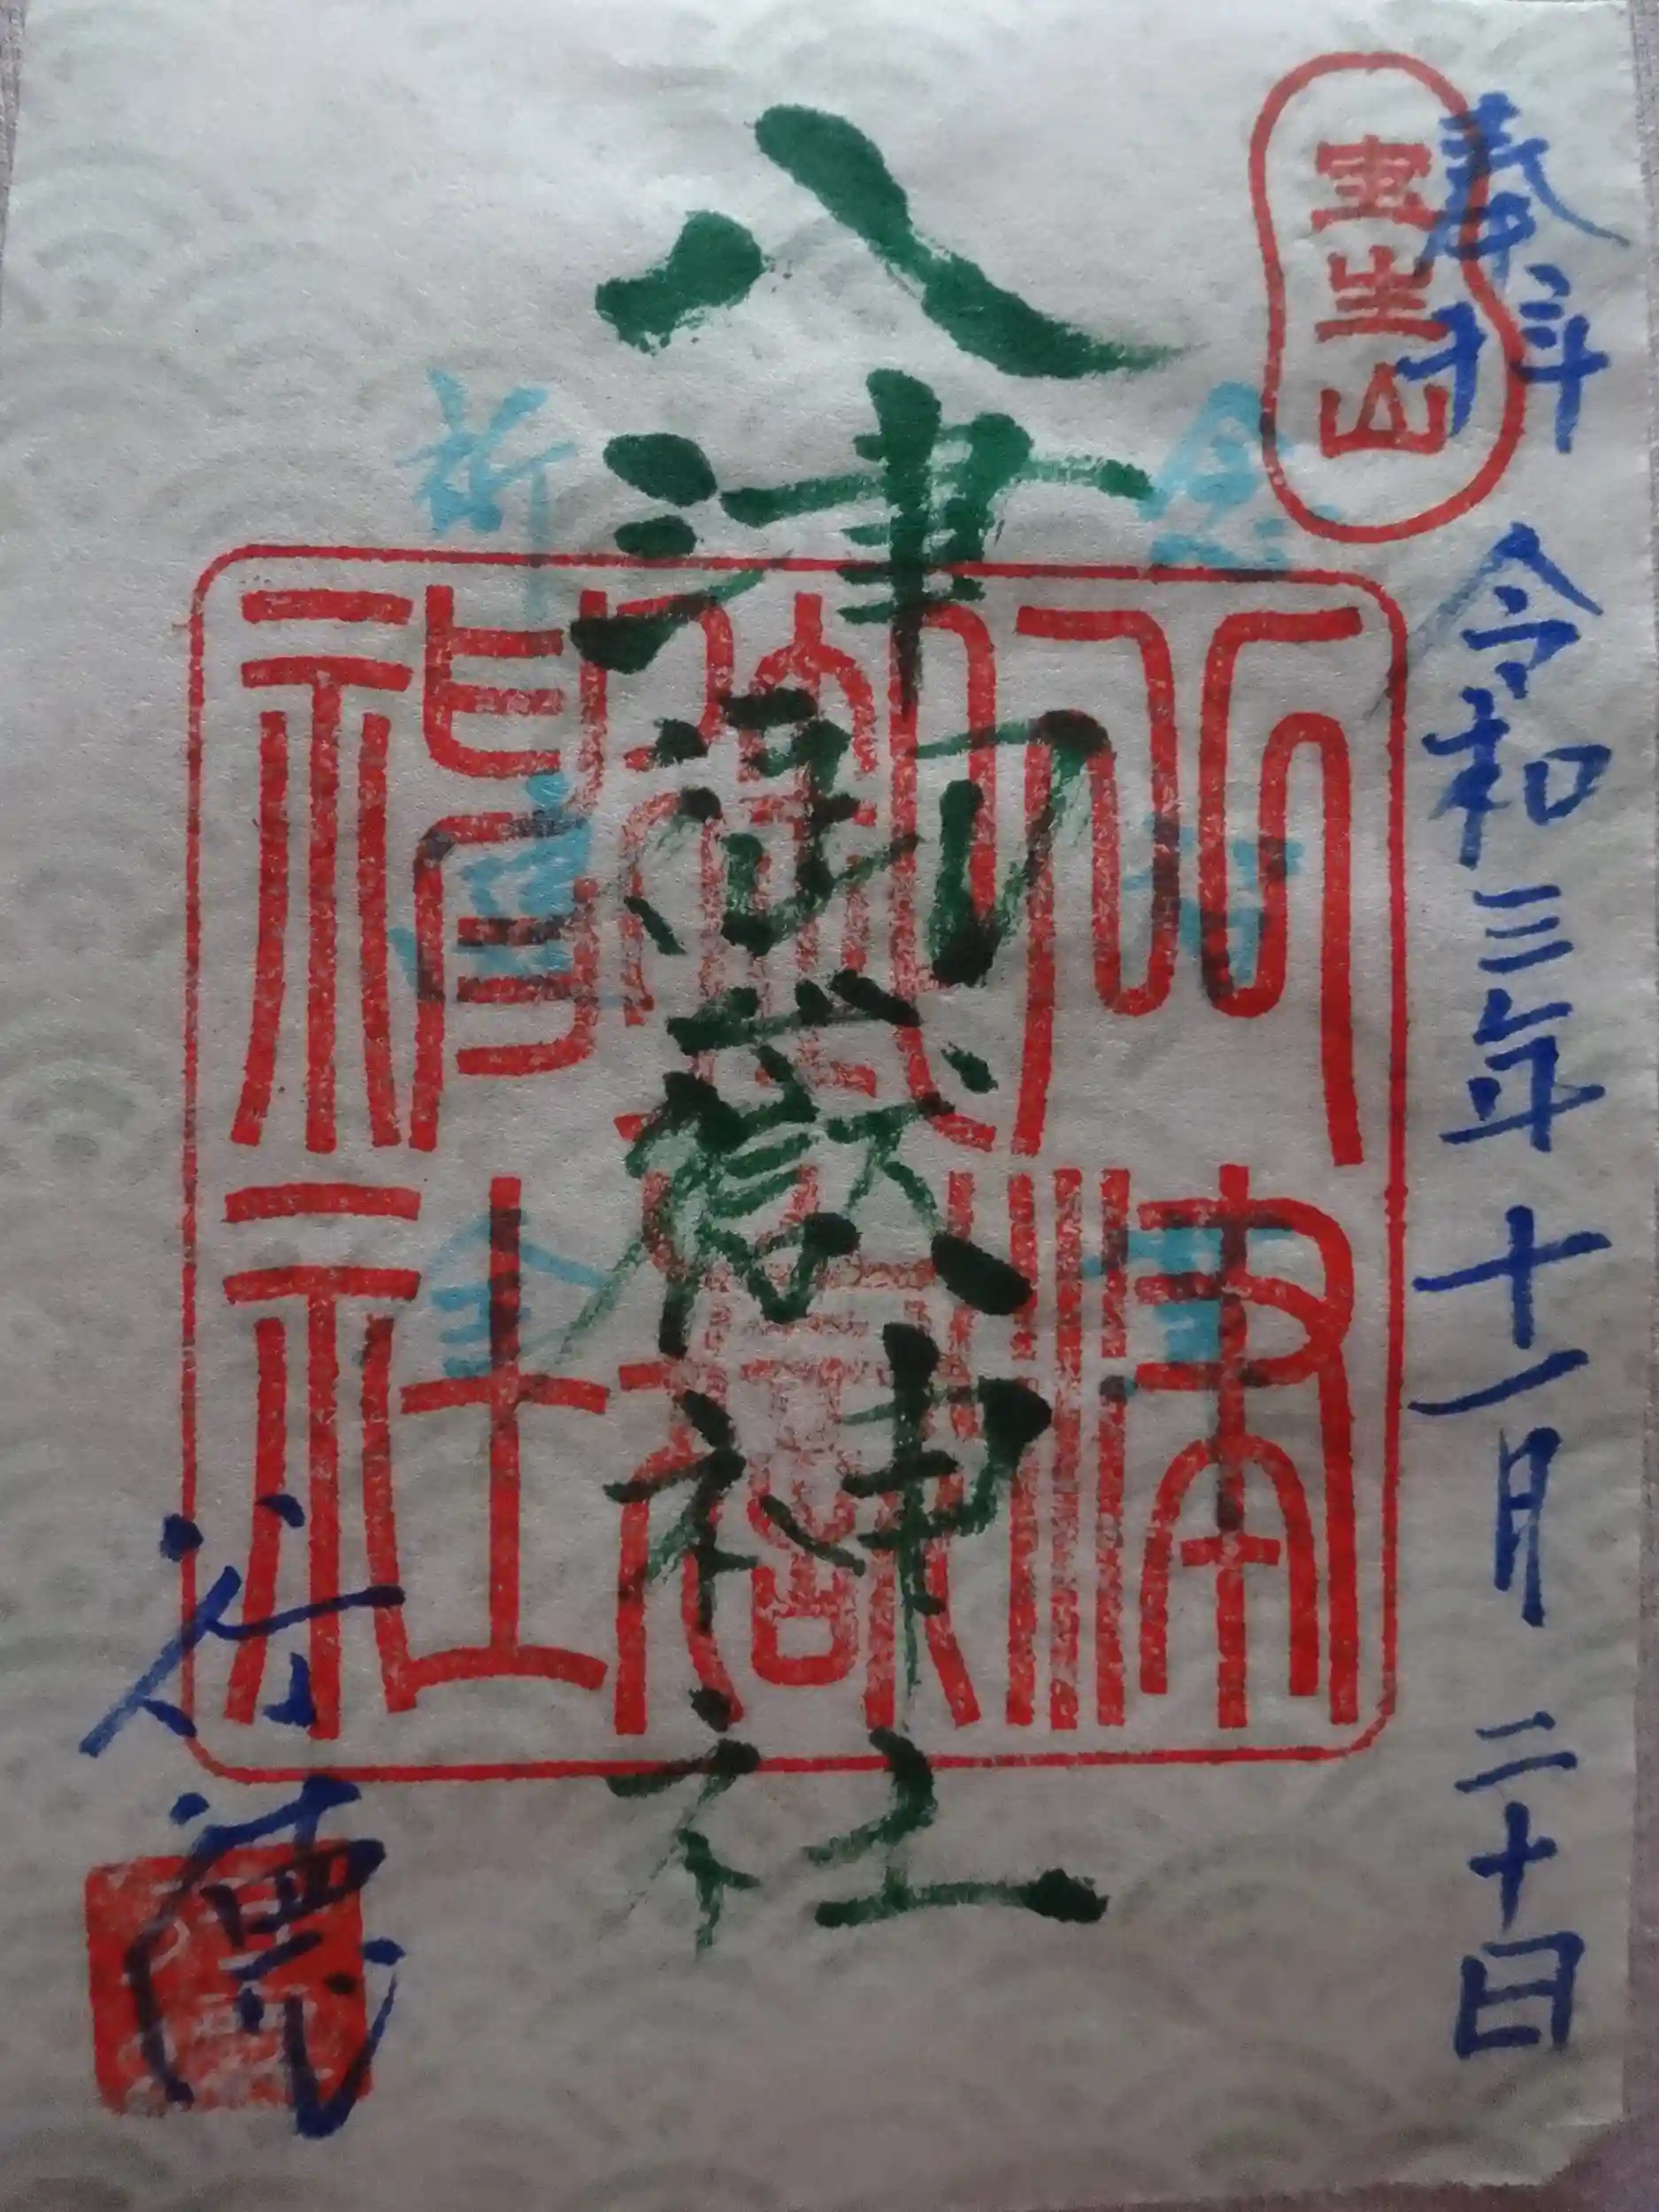 奉拝 令和三年十一月二十日
宝生山
八津御嶽神社
八津
御嶽
神社
行徳